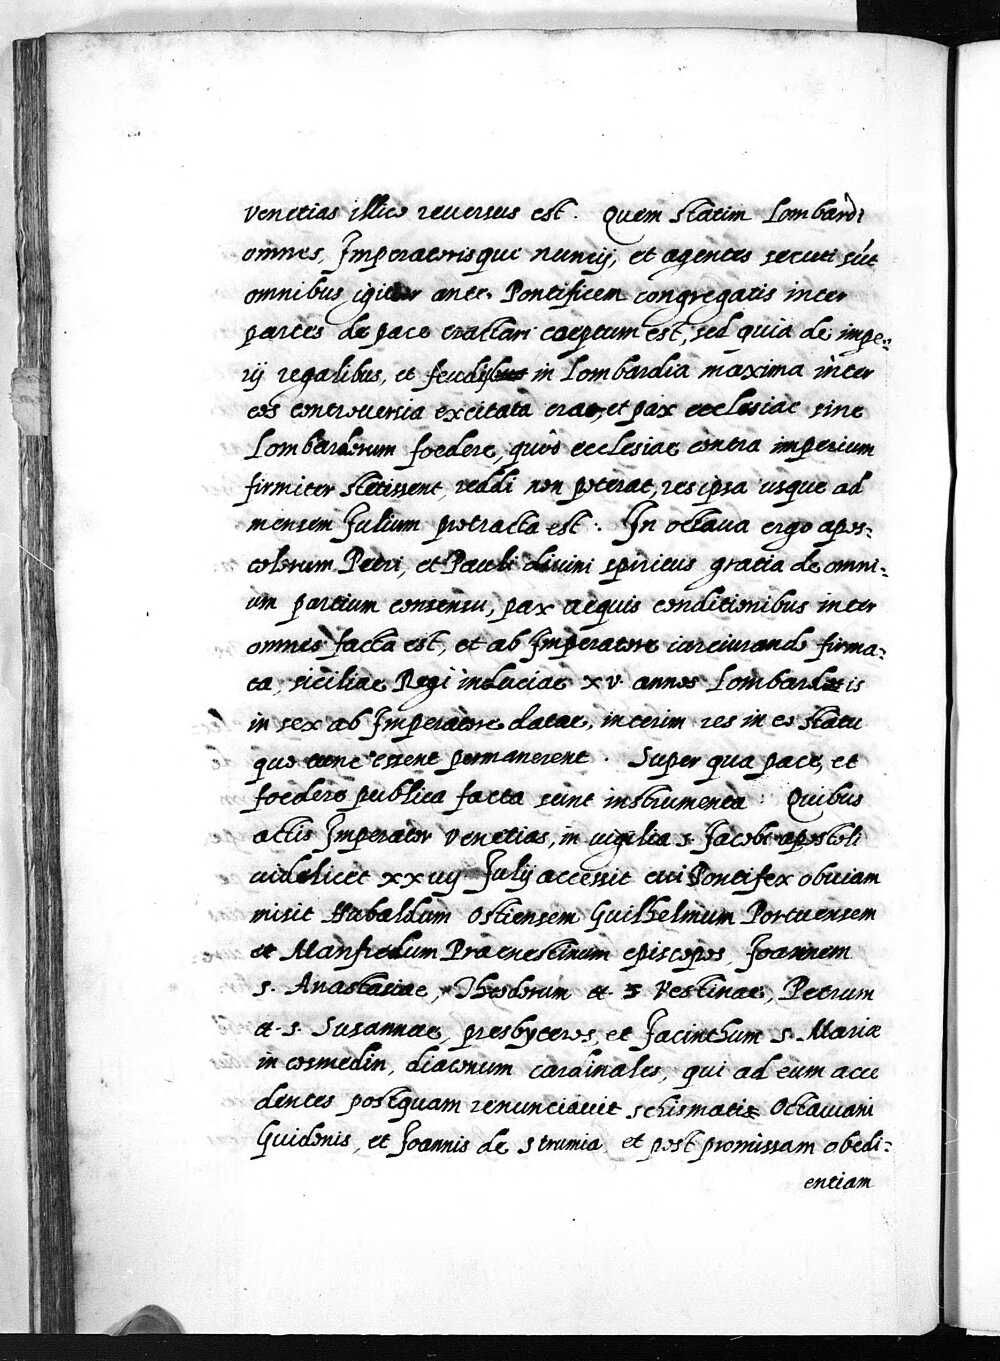 Venetias illico reuersus est. Quem statim Lombardi
omnes, Imperatorisque nuncij, et agentes secuti sũt
omnibus igitur ante Pontificem congregatis inter
partes de pace tractari caeptum est, sed quia de impe=
rij regalibus, et feudis in Lombardia maxima inter
eos controuersia excitata erat, et pax ecclesiae sine
Lombardorum foedere, quòd ecclesiae contra imperium
firmiter stetissent, reddi non poterat, res ipsa usque ad
mensem Julium protracta est. In octaua ergo apos=
tolorum Petri, et Pauli diuini spiritus gratia de omni=
um partium consensu, pax aequis conditionibus inter
omnes facta est, et ab Imperatore iureiurando firma=
ta, siciliae Regi induciae xv annos Lombardis
in sex ab Imperatore datae, interim res in eo statu
quo tunc essent permanerent. Super qua pace, et
foedere publica facta sunt instrumenta: Quibus
actis Imperator Venetias, in uigilia s. Jacobi apostoli
uidelicet xxuij Julij accessit cui Pontifex obuiam
misit Hubaldum Ostiensem Guilhelmum Portuensem
et Manfredum Praenestinum episcopos, Joannem
s. Anastasiae, Theodorum et s Vestinae, Petrum
et s. Susannae, presbyteros, et Jacinthum s. Mariae
in cosmedin, diaconum cardinales, qui ad eum acce
dentes postquam renunciauit schismatis Octauiani
Guidonis, et Joannis de strumia, et post promissam obedi=
entiam